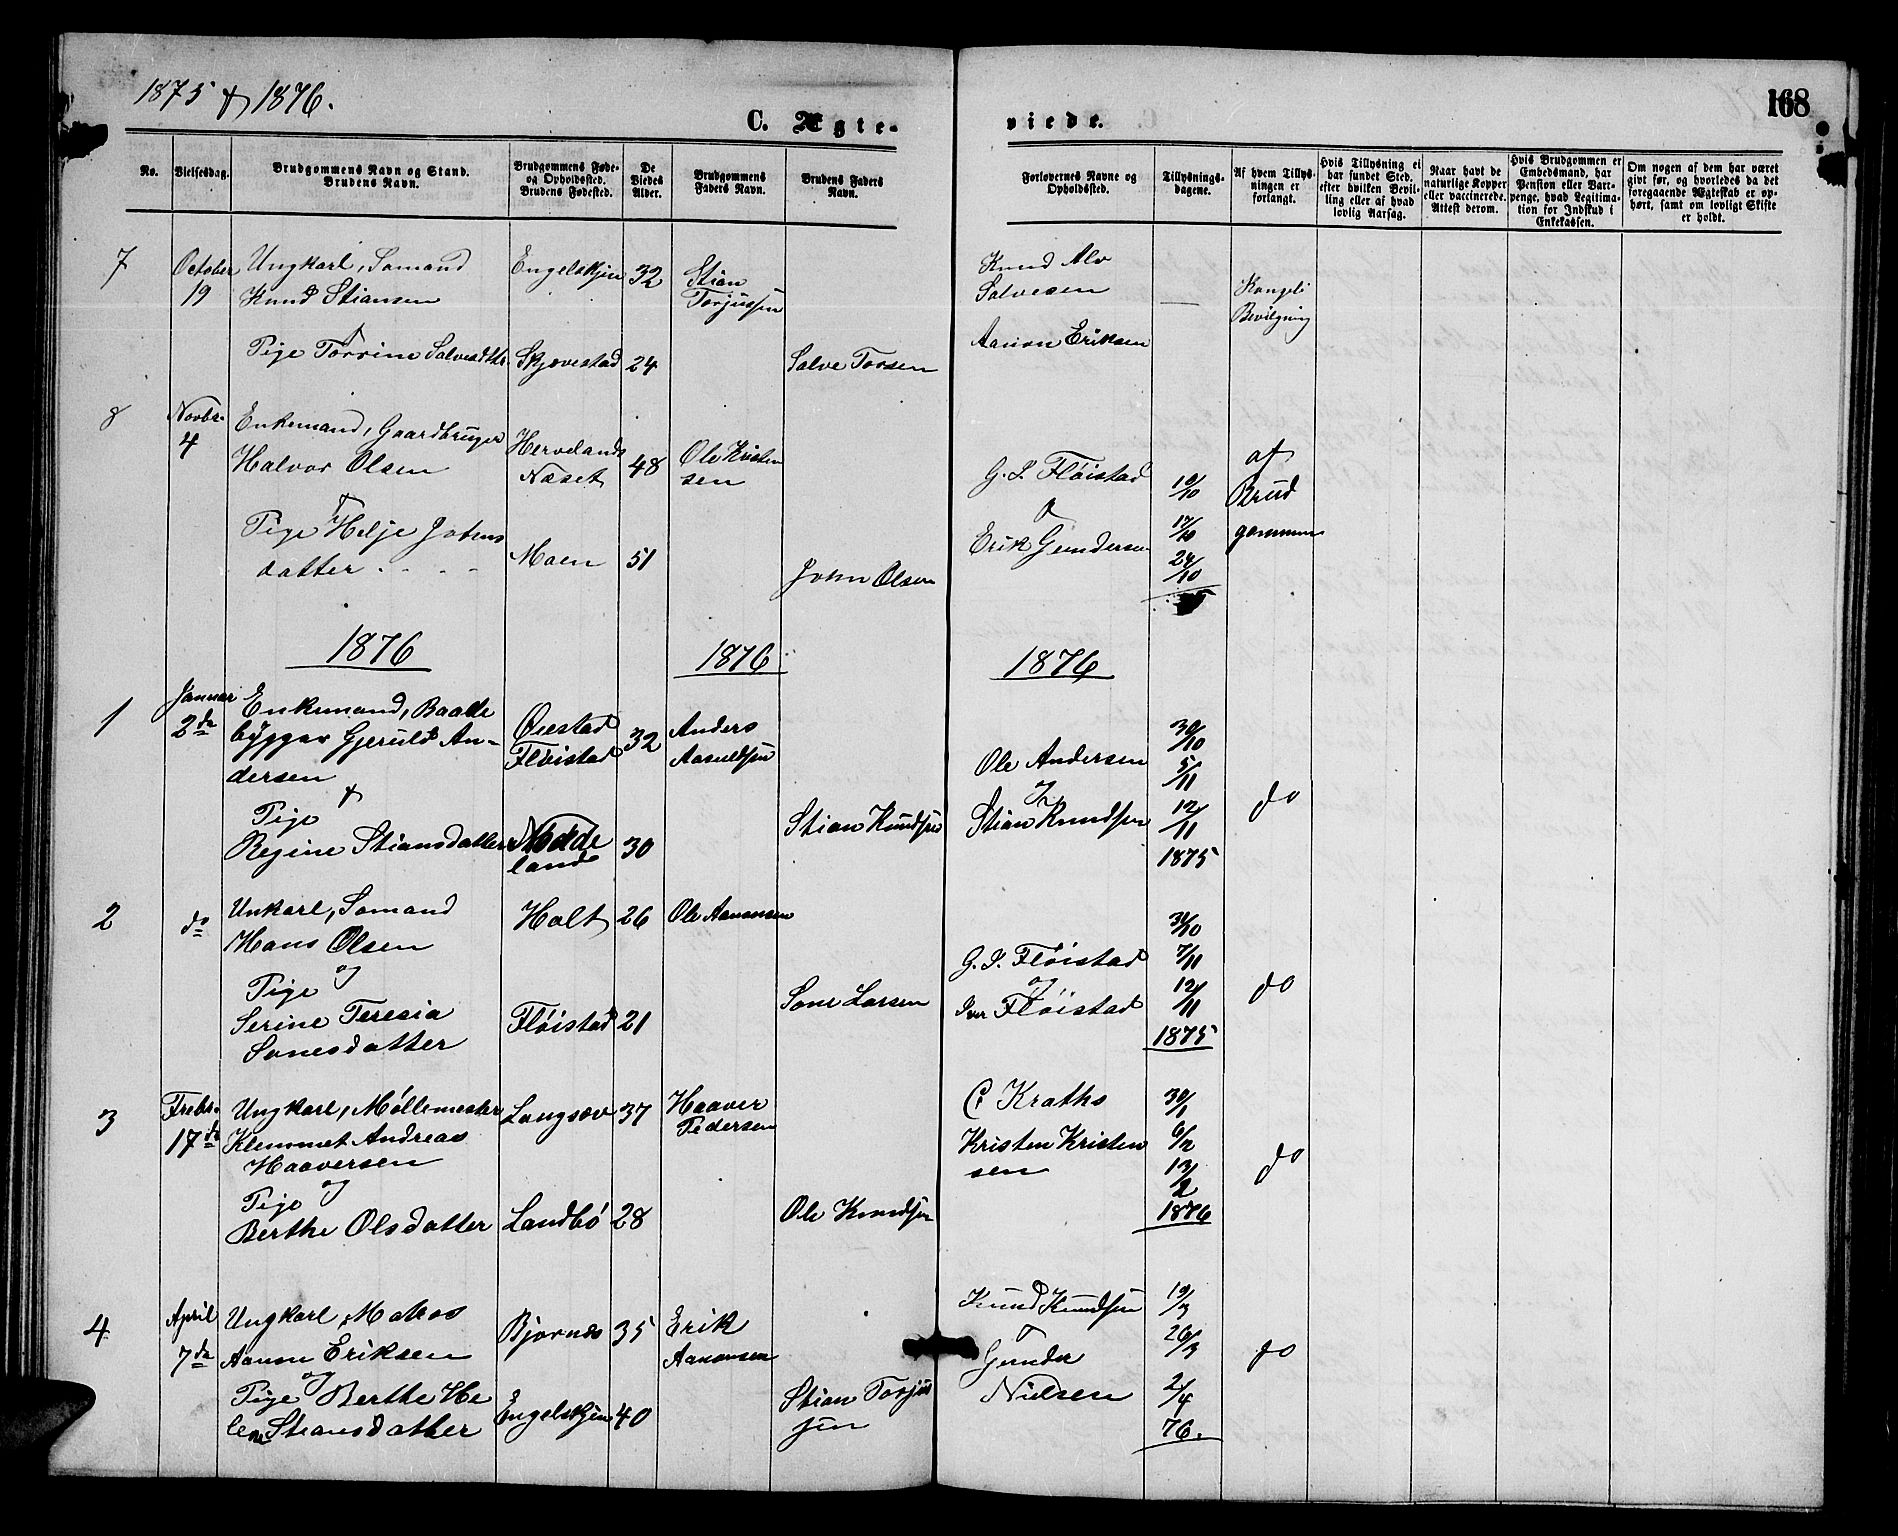 1875 & 1876.
168
C. Ægte-
viede.
No.
Vielsesdag.
Brudgommens Navn og Stand.
Brudens Navn.
Brudgommens Føde-
og Opholdsted.
Brudens Fødested.
De
Viedes
Alder.
Brudgommens
Faders Navn.
Brudens Faders
Navn.
Forlovernes Navne og
Opholdsted.
Tillysnings-
dagene.
Af hvem Tillys-
ningen er
forlangt.
Hvis Tillysning ei
har fundet Sted,
efter hvilken Bevil-
ling eller af hvad
lovlig Aarsag.
Naar havt de
naturlige Kopper
eller vaccinerede.
Attest derom.
Hvis Brudgommen er
Embedsmand, har
Pension eller Vart-
penge, hvad Legitima-
tion for Indskud i
Enkekassen.
Om nogen af dem har været
gift før, og hvorledes da det
foregaaende Ægteskab er op-
hørt, samt om lovligt Skifte
er holdt.
7
October
19
Ungkarl, Sømand
Knud Stiansen
Engelskjøn
32
Stian
Torjussen
Knud Alv
Salvesen
—
Kongeli
Bevilgning
&
Pige Torrine Salvesdttr.
Skjævestad
24
Salve Torsen
Aanon Eriksen
8
Novbr.
4
Enkemand, Gaardbruger
Halvor Olsen
Hervelands
Næset
48
Ole Kristen
sen
G. S. Fløistad
&
Erik Gundersen
10/10
17/10
24/10
af
Brud
gommen
Pige Helje Johns
datter
Moen
51
John Olsen
1876
1876
1876
1
Januar
2de
Enkemand, Baade
bygger Gjeruld An-
dersen
Øiestad
Fløistad
32
Anders
Aasuldsen
Ole Andersen
og
Stian Knudsen
30/10
5/11
12/11
1875
do
&
Pige
Regine Stiansdatter
Nødde
land
30
Stian Knudsen
2
do
Unkarl, Sømand
Hans Olsen
Holt
26
Ole Aanonsen
G. S. Fløistad
og
Iver Fløistad
30/10
7/11
12/11
1875
do
og
Pige
Serine Teresia
Sonesdatter
Fløistad
21
Sone Larsen
3
Frebr.
17de
Ungkarl, Møllemester
Klemmet Andreas
Haaversen
Langsæv
37
Haaver
Pedersen
C. Kraths
Kristen Kristen
sen
30/1
6/2
13/2
1876
do
og
Pige
Berthe Olsdatter
Landbø
28
Ole Knudsen
4
April
7de
Ungkarl, Matros
Aanon Eriksen
Bjornes
35
Erik
Aanonsen
Knud Knudsen
Gunder
Nielsen
19/3
26/3
2/4
76.
do
og
Pige Berthe He
lene Stiansdatter
Engelskjøn
40
Stian Torjus
sen